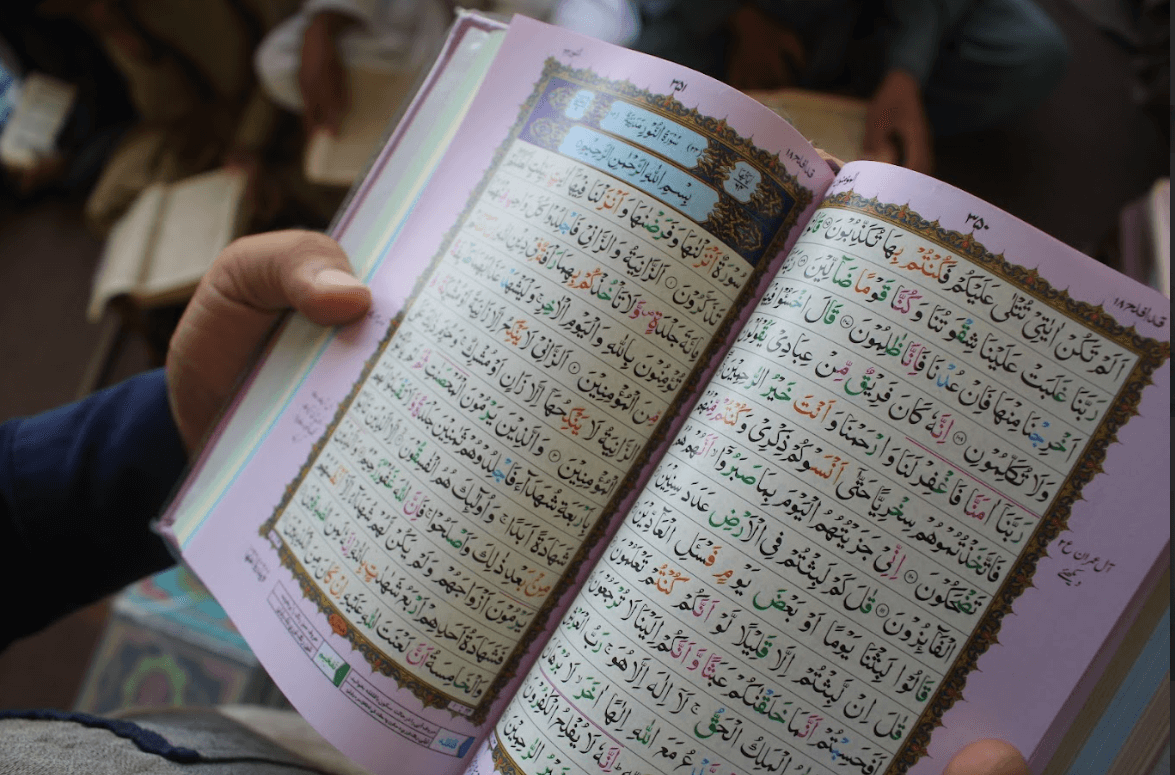 قد افلح ١٨
۳۵۰
المؤمنون
اَلَمْ تَكُنْ اٰيٰتِيْ تُتْلٰى عَلَيْكُمْ فَكُنْتُمْ بِهَا تُكَذِّبُوْنَ
رَبَّنَا غَلَبَتْ عَلَيْنَا شِقْوَتُنَا وَكُنَّا قَوْمًا ضَآلِّيْنَ
اَخْرِجْنَا مِنْهَا فَاِنْ عُدْنَا فَاِنَّا ظٰلِمُوْنَ قَالَ اخْسَـُٔوْا فِيْهَا
وَلَا تُكَلِّمُوْنِ اِنَّهٗ كَانَ فَرِيْقٌ مِّنْ عِبَادِيْ يَقُوْلُوْنَ
رَبَّنَآ اٰمَنَّا فَاغْفِرْ لَنَا وَارْحَمْنَا وَاَنْتَ خَيْرُ الرّٰحِمِيْنَ
فَاتَّخَذْتُمُوْهُمْ سِخْرِيًّا حَتّٰٓى اَنْسَوْكُمْ ذِكْرِيْ وَكُنْتُمْ مِّنْهُمْ
تَضْحَكُوْنَ اِنِّيْ جَزَيْتُهُمُ الْيَوْمَ بِمَا صَبَرُوْٓا اَنَّهُمْ هُمُ
الْفَآئِزُوْنَ قٰلَ كَمْ لَبِثْتُمْ فِي الْاَرْضِ عَدَدَ سِنِيْنَ
قَالُوْا لَبِثْنَا يَوْمًا اَوْ بَعْضَ يَوْمٍ فَسْـَٔلِ الْعَآدِّيْنَ
قٰلَ اِنْ لَّبِثْتُمْ اِلَّا قَلِيْلًا لَّوْ اَنَّكُمْ كُنْتُمْ تَعْلَمُوْنَ
اَفَحَسِبْتُمْ اَنَّمَا خَلَقْنٰكُمْ عَبَثًا وَّاَنَّكُمْ اِلَيْنَا لَا تُرْجَعُوْنَ
الْمَلِكُ الْحَقُّ لَآ اِلٰهَ اِلَّا هُوَ رَبُّ الْعَرْشِ
مَعَ اللّٰهِ اِلٰهًا اٰخَرَ لَا بُرْهَانَ
اِنَّهٗ لَا يُفْلِحُ الْكٰفِرُوْنَ
خَيْرُ الرّٰحِمِيْنَ
آل عمران
قد افلح ١٨
۳۵۱
سُوْرَةُ النُّوْرِ مَدَنِيَّةٌ
بِسْمِ اللّٰهِ الرَّحْمٰنِ الرَّحِيْمِ
سُوْرَةٌ اَنْزَلْنٰهَا وَفَرَضْنٰهَا وَاَنْزَلْنَا فِيْهَآ
تَذَكَّرُوْنَ اَلزَّانِيَةُ وَالزَّانِيْ فَاجْلِدُوْا كُلَّ وَاحِدٍ
مِائَةَ جَلْدَةٍ وَّلَا تَاْخُذْكُمْ بِهِمَا رَاْفَةٌ فِيْ دِيْنِ
تُؤْمِنُوْنَ بِاللّٰهِ وَالْيَوْمِ الْاٰخِرِ وَلْيَشْهَدْ عَذَابَهُمَا
مِّنَ الْمُؤْمِنِيْنَ اَلزَّانِيْ لَا يَنْكِحُ اِلَّا زَانِيَةً اَوْ مُشْرِكَةً
الزَّانِيَةُ لَا يَنْكِحُهَآ اِلَّا زَانٍ اَوْ مُشْرِكٌ وَحُرِّمَ
الْمُؤْمِنِيْنَ وَالَّذِيْنَ يَرْمُوْنَ الْمُحْصَنٰتِ ثُمَّ
بِاَرْبَعَةِ شُهَدَآءَ فَاجْلِدُوْهُمْ ثَمٰنِيْنَ جَلْدَةً
شَهَادَةً اَبَدًا وَاُولٰٓئِكَ هُمُ الْفٰسِقُوْنَ اِلَّا الَّذِيْنَ
مِنْۢ بَعْدِ ذٰلِكَ وَاَصْلَحُوْا فَاِنَّ اللّٰهَ غَفُوْرٌ
يَرْمُوْنَ اَزْوَاجَهُمْ وَلَمْ يَكُنْ لَّهُمْ شُهَدَآءُ اِلَّآ
فَشَهَادَةُ اَحَدِهِمْ اَرْبَعُ شَهٰدٰتٍۢ بِاللّٰهِ
وَالْخَامِسَةُ اَنَّ لَعْنَتَ اللّٰهِ عَلَيْهِ اِنْ كَانَ مِنَ